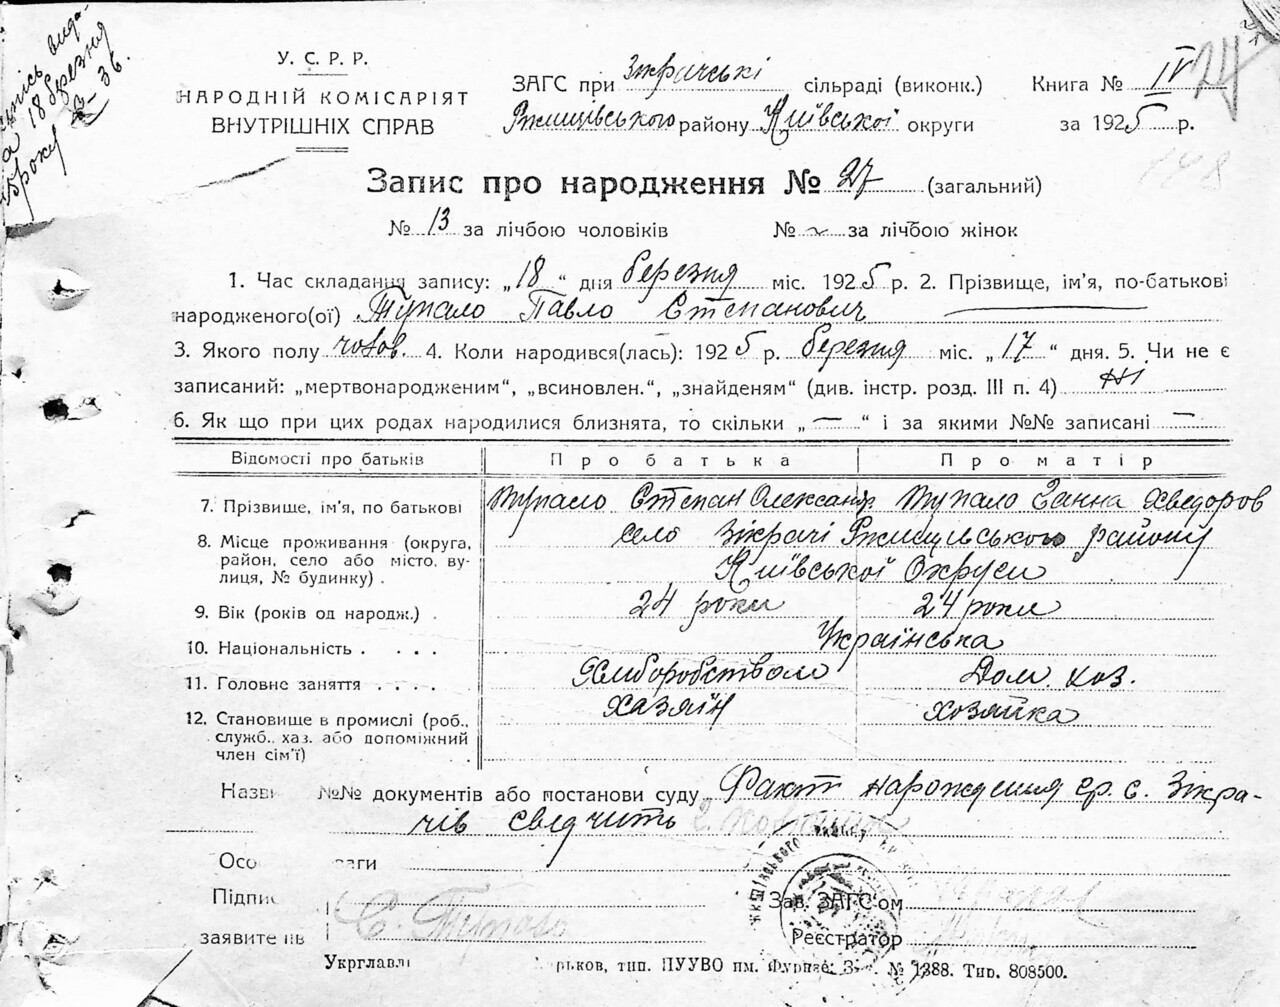 У. С. Р. Р.
НАРОДНІЙ КОМІСАРІЯТ
ВНУТРІШНІХ СПРАВ
ЗАГС при Зікрачські сільраді (виконк.) Книга № IV 24
Ржищівського району Київської округи за 1925 р.
18 березня
36.
року
148
Запис про народження № 27 (загальний)
№ 13 за лічбою чоловіків № ~ за лічбою жінок
1. Час складання запису: „18“ дня березня міс. 1925 р. 2. Прізвище, ім'я, по-батькові
народженого(ої) Тупало Павло Степанович
3. Якого полу чолов. 4. Коли народився(лась): 1925 р. березня міс. „17“ дня. 5. Чи не є
записаний: „мертвонародженим“, „всиновлен.“, „знайденям“ (див. інстр. розд. III п. 4) Ні
6. Як що при цих родах народилися близнята, то скільки „—“ і за якими №№ записані —
Відомості про батьків Про батька Про матір
7. Прізвище, ім'я, по батькові Тупало Степан Олександр. Тупало Ганна Хведоров
8. Місце проживання (округа, район, село або місто, вулиця, № будинку) . село Зікрачі Ржищівського району
Київської Округи
9. Вік (років од народж.) . 24 роки 24 роки
10. Національність . . . . Українська
11. Головне заняття . . . . Хліборобством Дом. хоз.
12. Становище в промислі (роб., служб., хаз. або допоміжний член сім'ї) . хазяїн хозяйка
Назві №№ документів або постанови суду Факт нарождения гр. с. Зікра-
чів свідчить
Осо ваги
Підпис С. Тупало Зав. ЗАГС'ом
заявите ів Реєстратор
Укрглавлі арьків, тип. ПУУВО им. Фрунзе. Зак. № 1388. Тир. 808500.